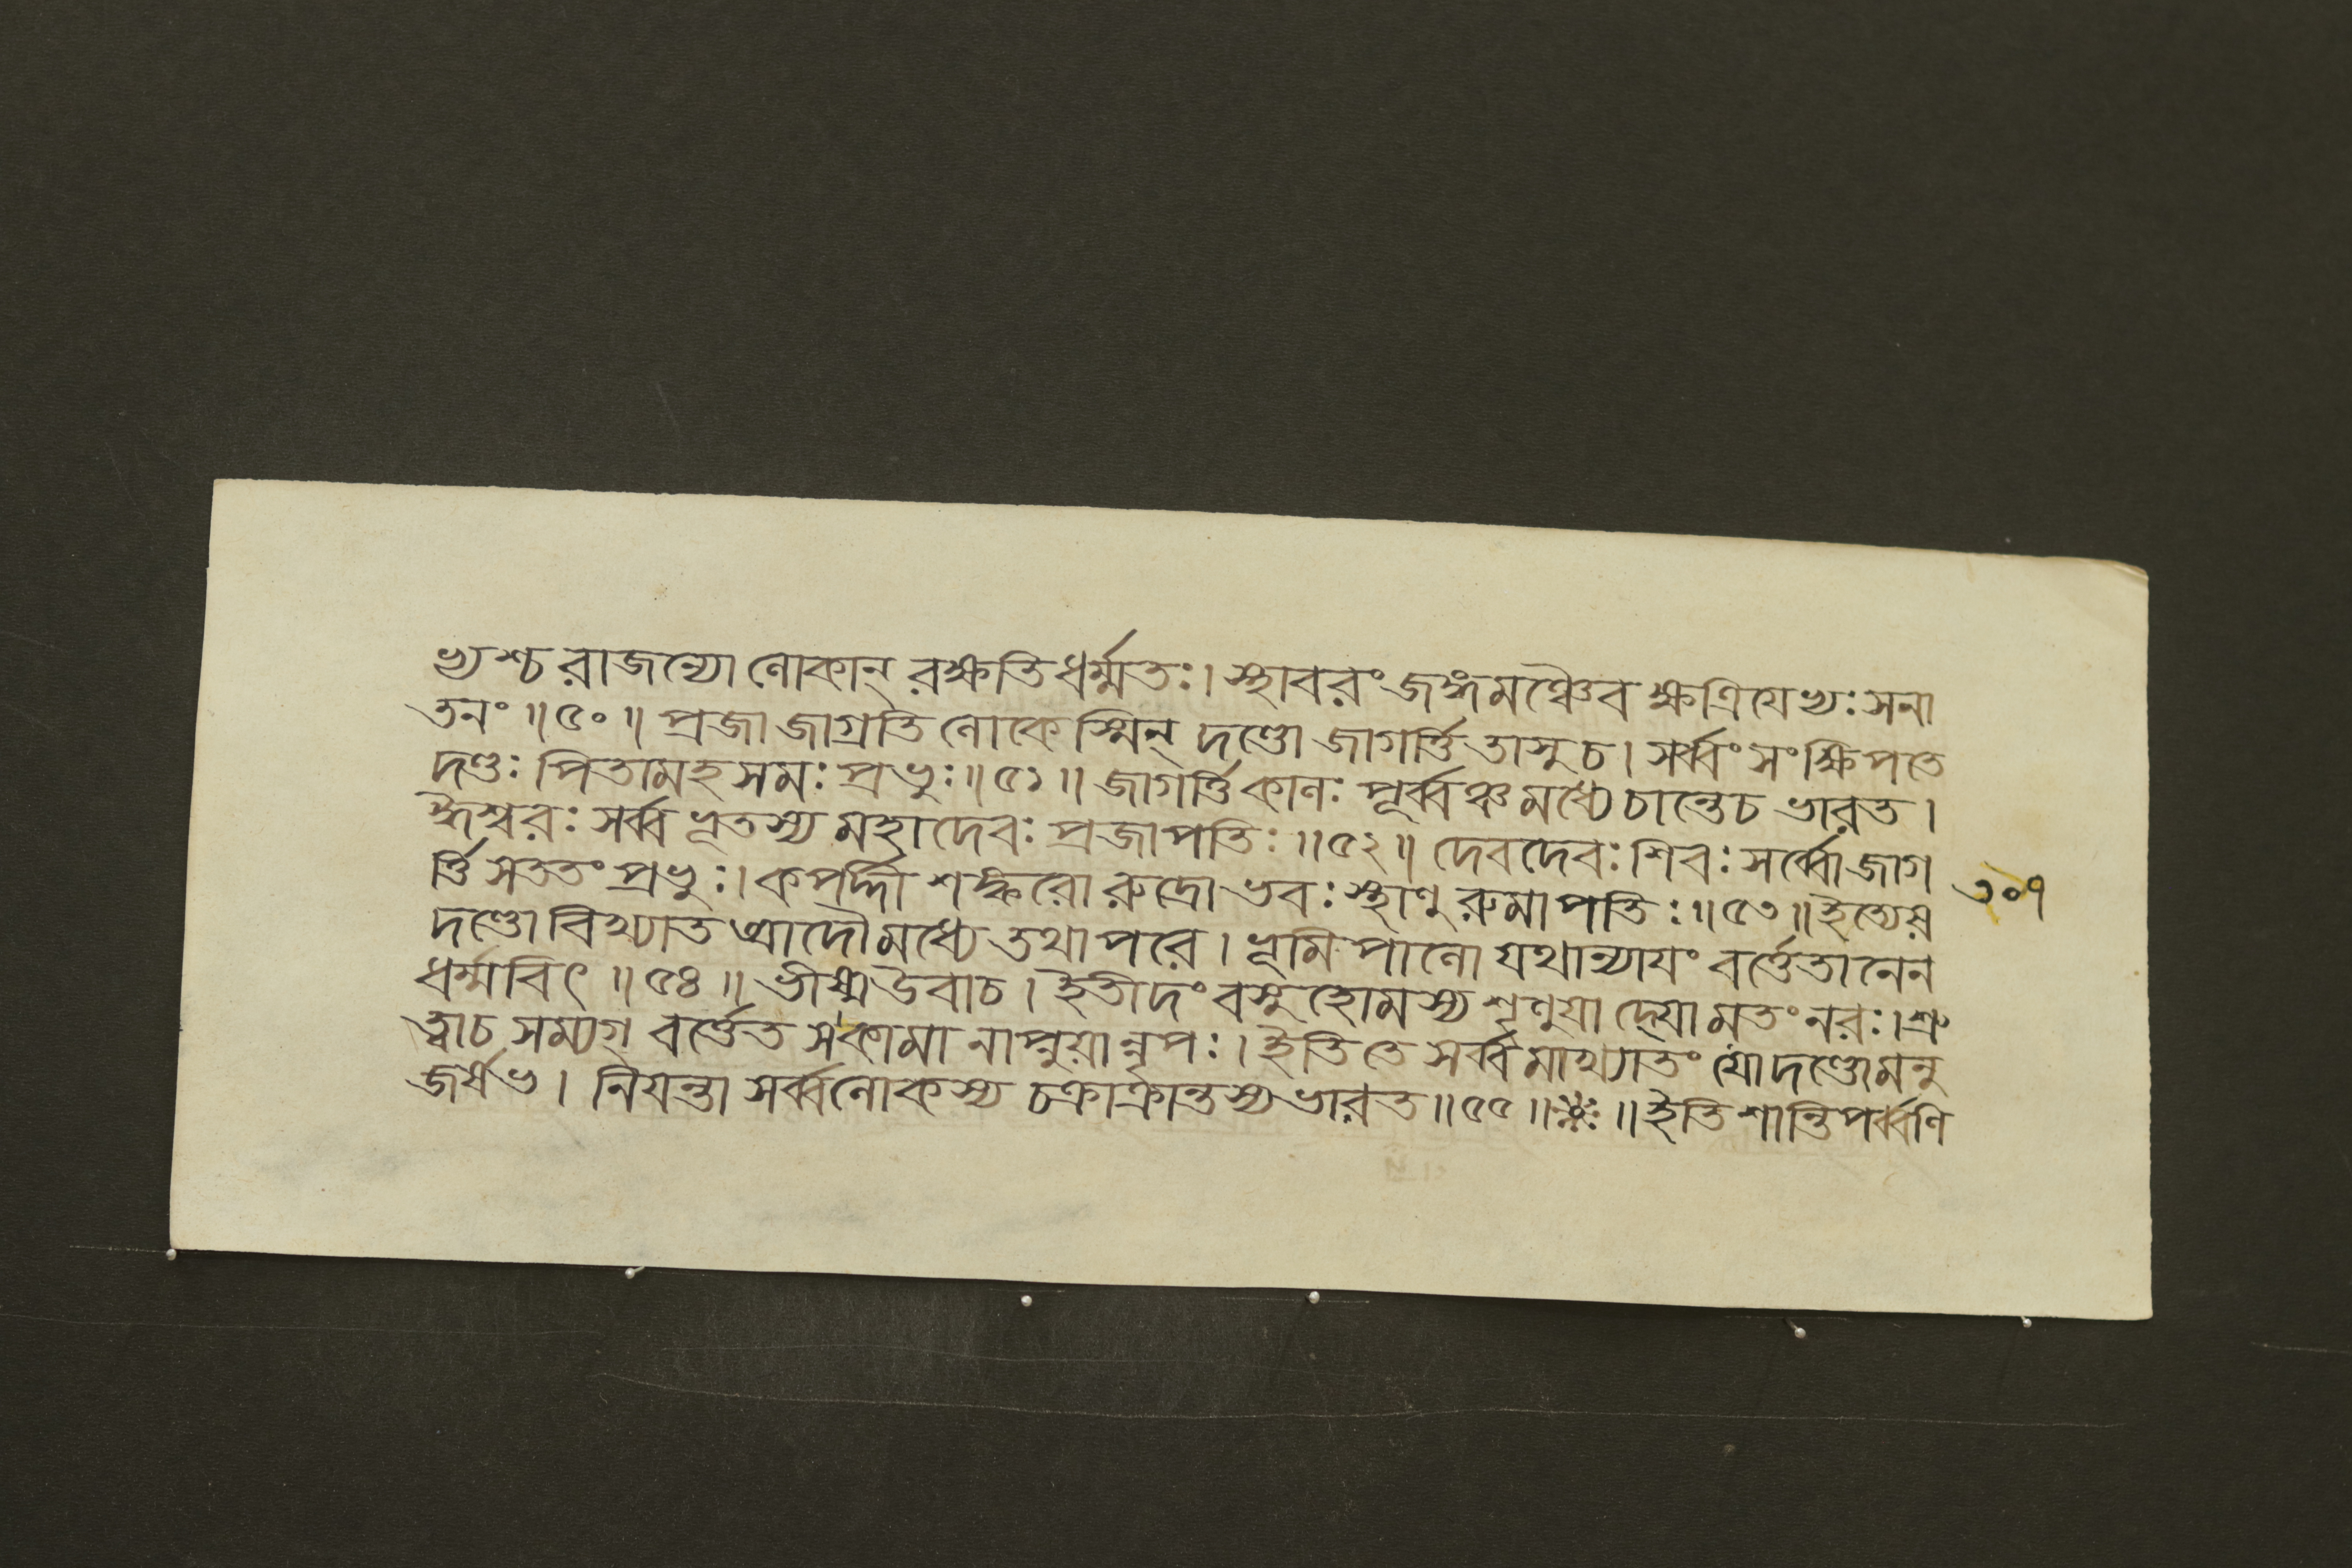 ভ্যশ্চ রাজন্যো লোকান্ রক্ষতি ধর্ম্মতঃ। স্থাবরং জঙ্গমঞ্চৈব ক্ষত্রিযেভ্যঃ সনা
তনং ॥৫০॥ প্রজা জাগ্রতি লোকেস্মিন্ দণ্ডো জাগর্ত্তি তাসু চ। সর্ব্বং সংক্ষিপতে
দণ্ডঃ পিতামহসমঃ প্রভুঃ॥৫১॥ জাগর্ত্তি কালঃ পূর্ব্বঞ্চ মধ্যে চান্তে চ ভারত।
ঈশ্বরঃ সর্ব্বভূতস্য মহাদেবঃ প্রজাপতিঃ॥৫২॥ দেবদেবঃ শিবঃ সর্ব্বো জাগ
র্ত্তি সততং প্রভুঃ। কপর্দ্দী শঙ্করো রুদ্রো ভবঃ স্থাণুরুমাপতিঃ॥৫৩॥ ইত্যেষ
৩০৭
দণ্ডো বিখ্যাত আদৌ মধ্যে তথাপরে। ভূমিপালো যথান্যাযং বর্ত্তেতানেন
ধর্ম্মবিৎ ॥৫৪॥ ভীষ্ম উবাচ। ইতীদং বসুহোমস্য শৃণুযাদ্যো মতং নরঃ। শ্রু
ত্বা চ সম্যগ্ বর্ত্তেত স কামানাপ্নুয়ান্নৃপঃ। ইতি তে সর্ব্বমাখ্যাতং যো দণ্ডো মনু
জর্ষভ। নিযন্তা সর্ব্বলোকস্য চক্রাক্রান্তস্য ভারত॥৫৫॥ ॥ ইতি শান্তিপর্ব্বণি